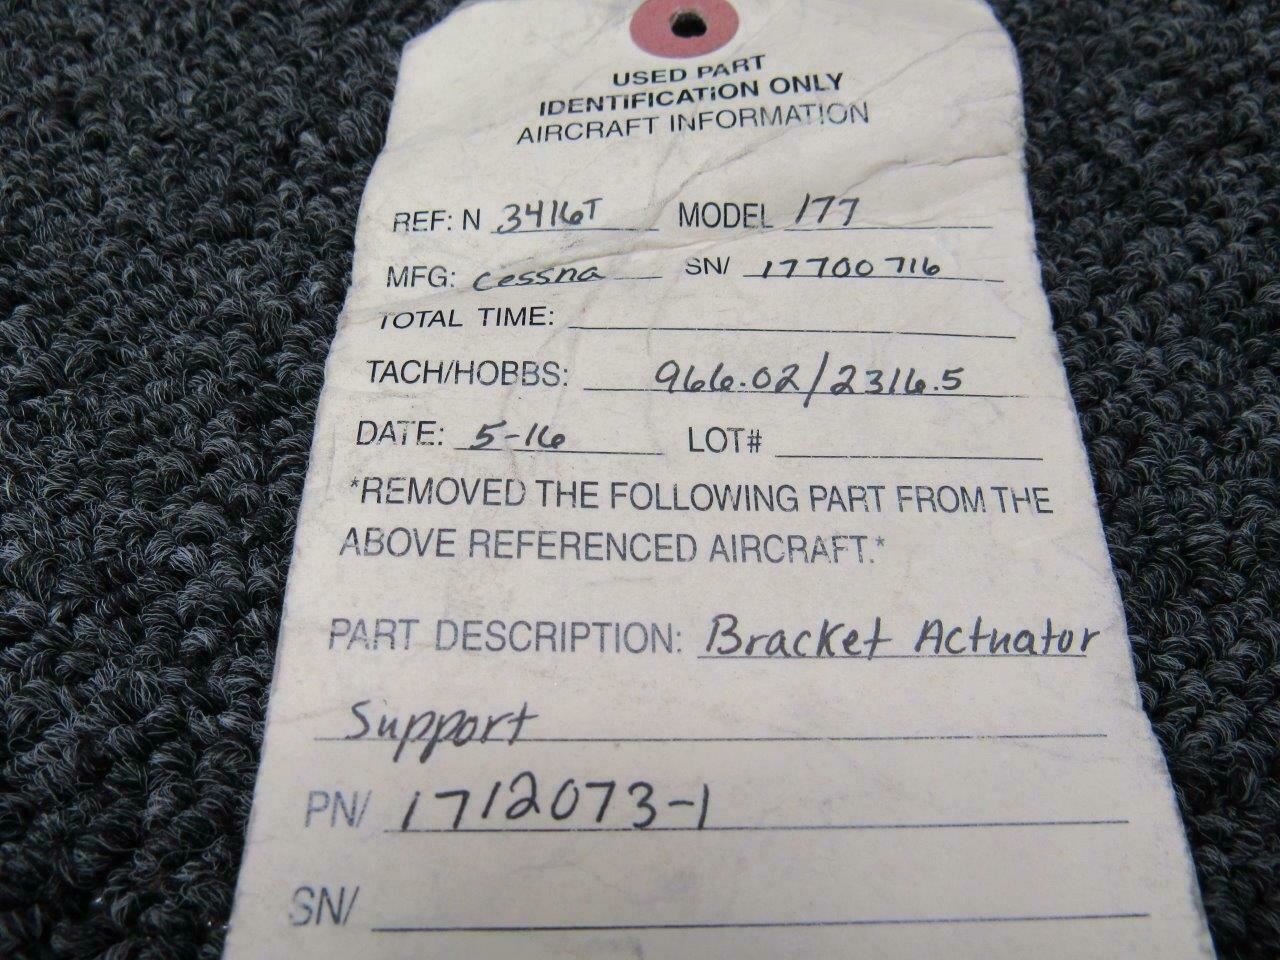 USED PART
IDENTIFICATION ONLY
AIRCRAFT INFORMATION
REF: N 3416T MODEL 177
MFG: Cessna SN/ 17700716
TOTAL TIME:
TACH/HOBBS: 966.02/2316.5
DATE: 5-16 LOT#
*REMOVED THE FOLLOWING PART FROM THE
ABOVE REFERENCED AIRCRAFT.*
PART DESCRIPTION: Bracket Actuator
Support
PN/ 1712073-1
SN/